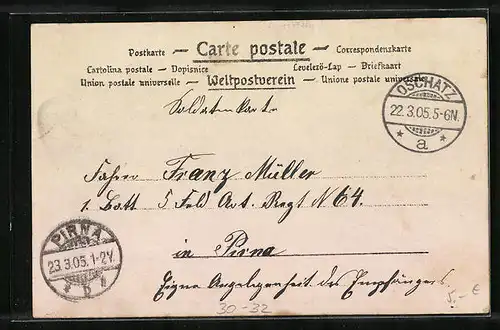 Postkarte — Carte postale — Correspondenzkarte
Cartolina postale — Dopisnice Levelező-Lap — Briefkaart
Union postale universelle — Weltpostverein — Unione postale universale
Soldatenkarte
OSCHATZ
22.3.05.5-6N.
* a *
Fahrer Franz Müller
1. Batt 5 Feld Art. Regt N 64.
in Pirna
PIRNA
23.3.05.1-2V.
* b *
Eigne Angelegenheit des Empfängers
5,- €
30-32